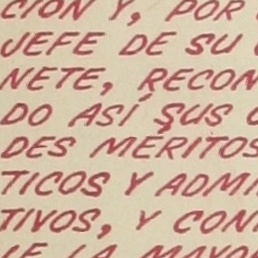 CION Y, POR
JEFE DE SU
NETE, RECON
DO ASÍ SUS
DES MÉRITOS
TICOS Y ADMI
TIVOS, Y CON
LE LA MAYO